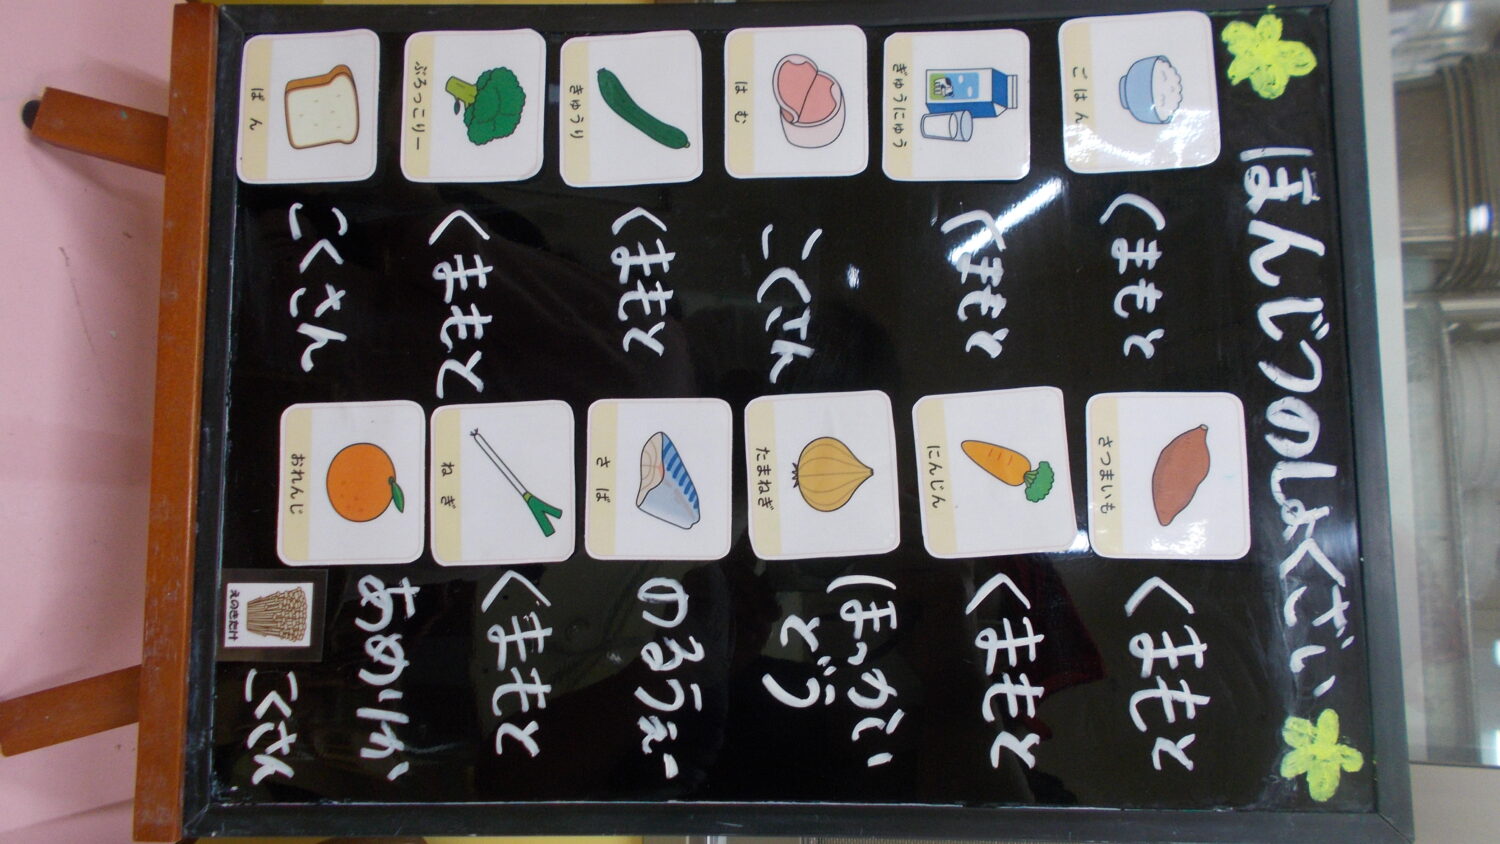 ほんじつのしょくざい
ごはん
くまもと
さつまいも
くまもと
ぎゅうにゅう
くまもと
にんじん
くまもと
はむ
こくさん
たまねぎ
ほっかい
どう
きゅうり
くまもと
さば
のるうぇー
ぶろっこりー
くまもと
ねぎ
くまもと
ぱん
こくさん
おれんじ
あめりか
えのきだけ
こくさん